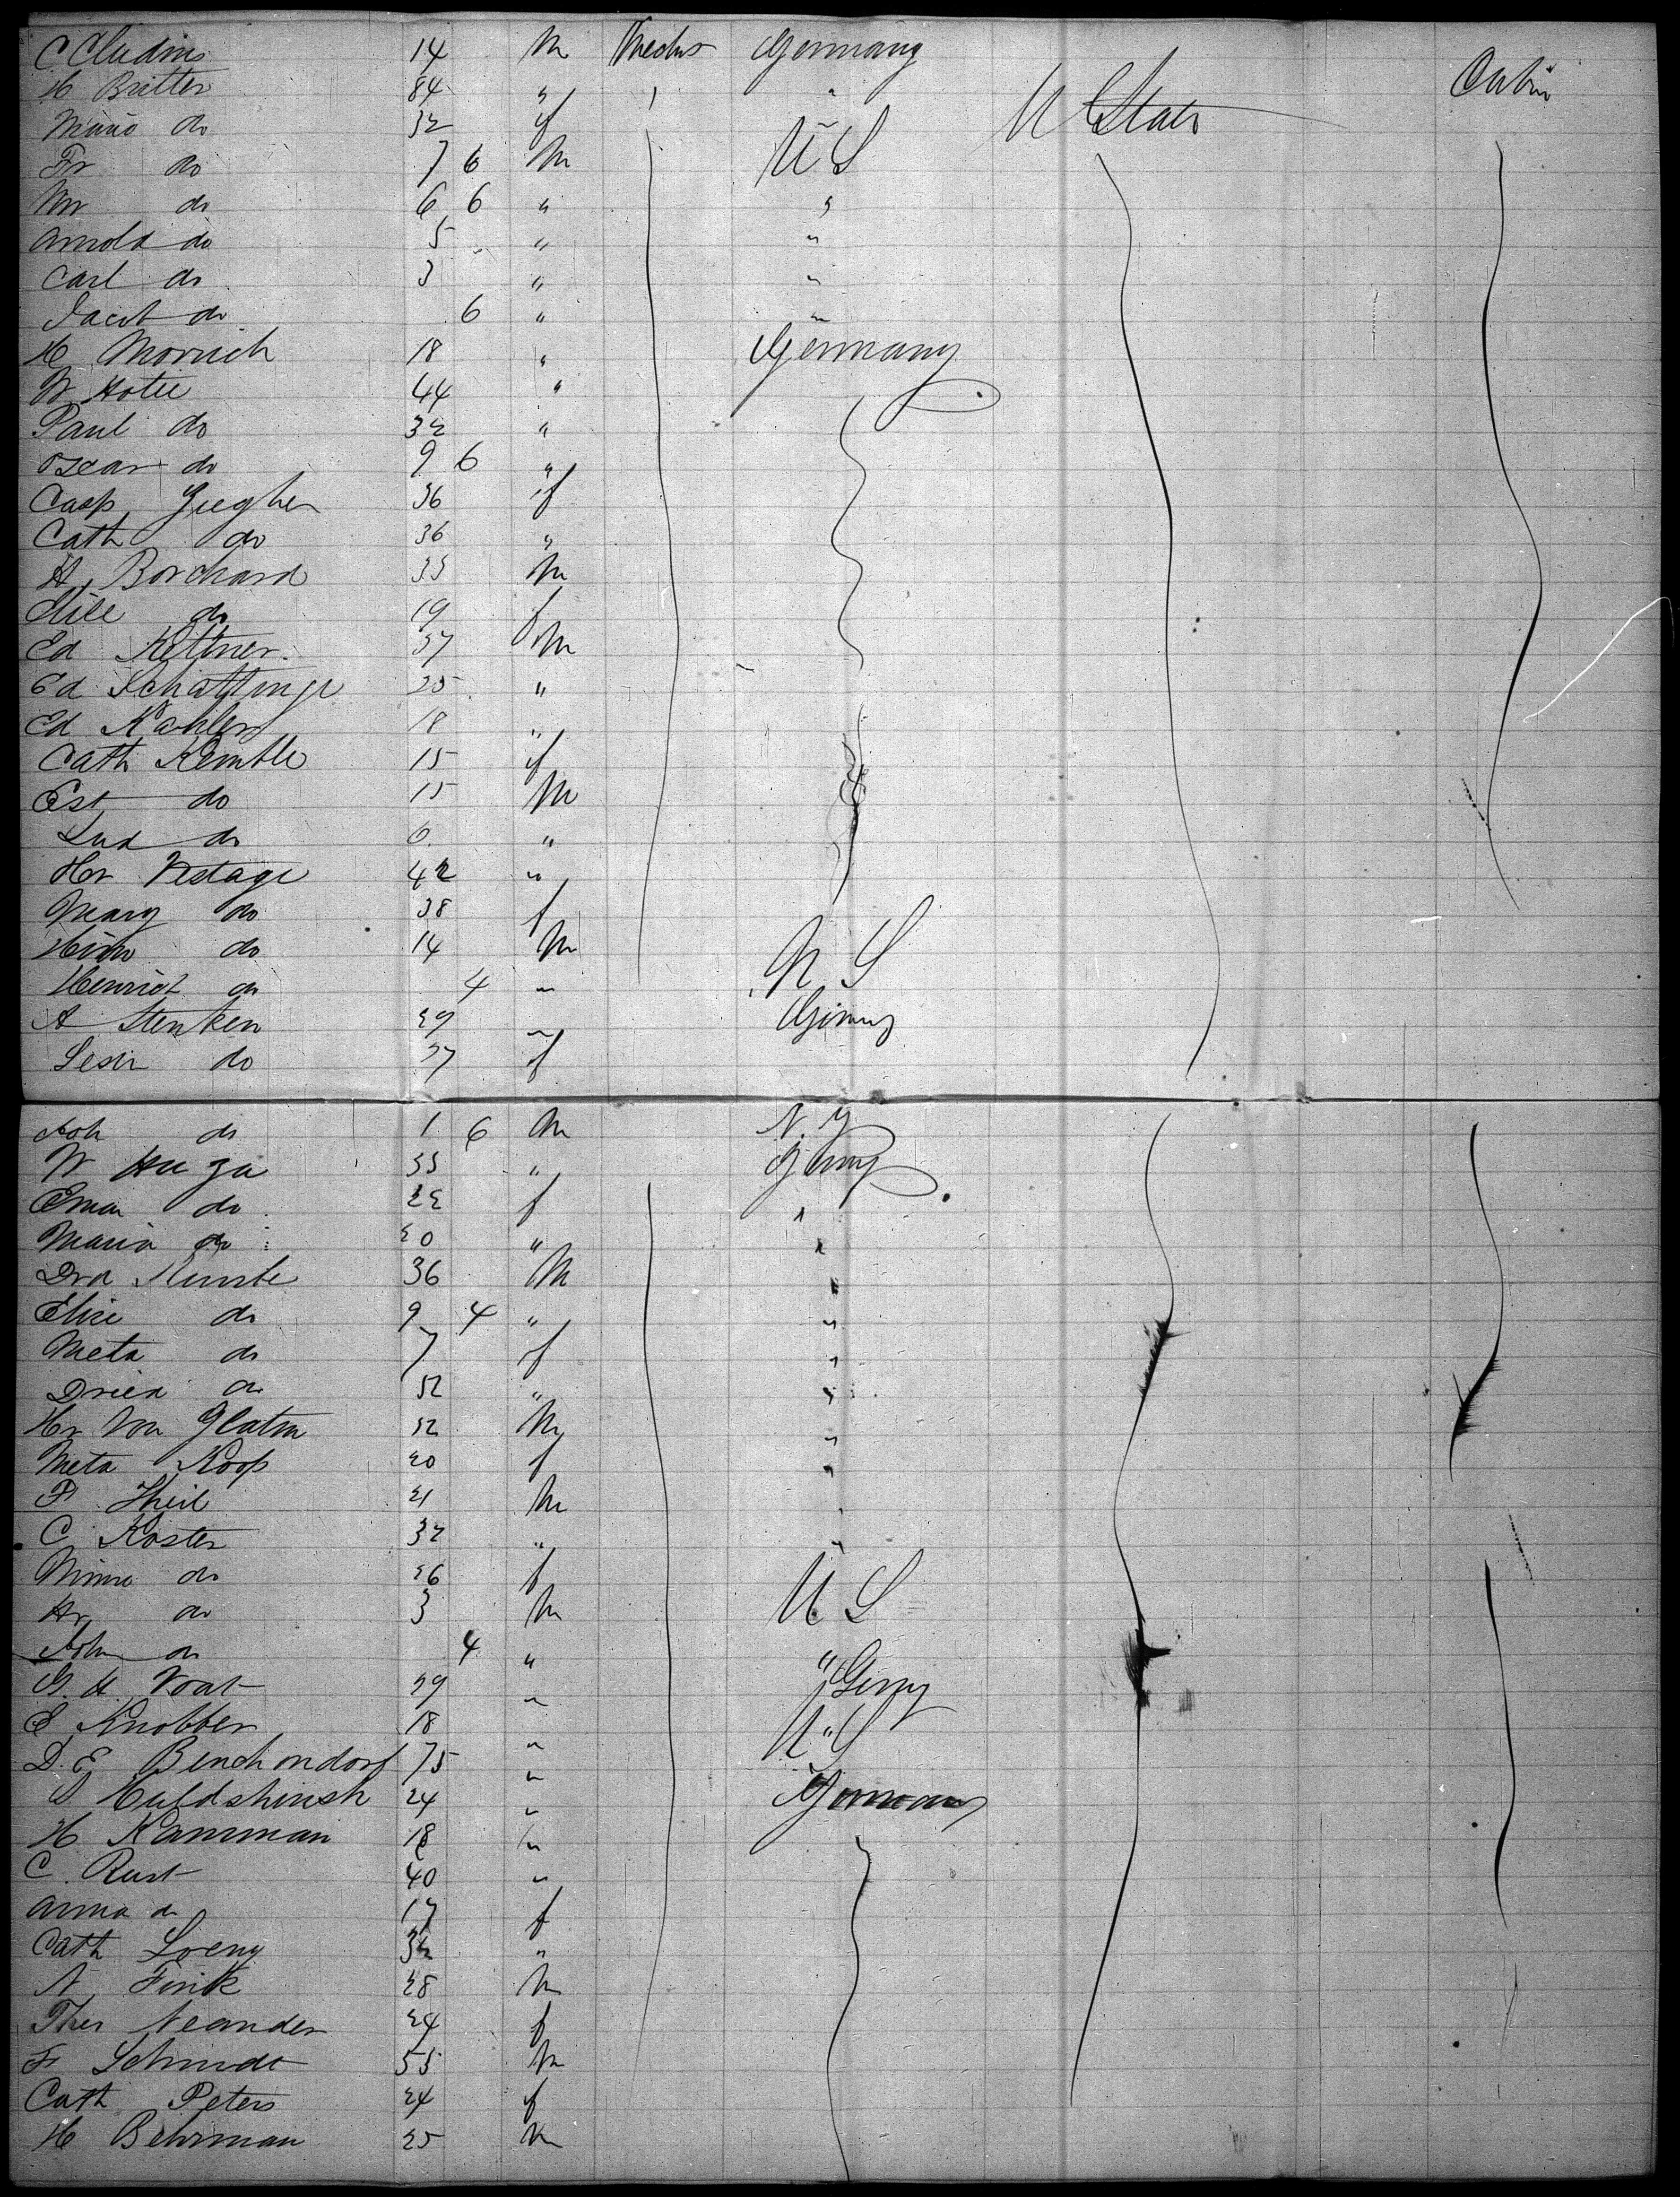 C Cludius 14 M Germany
H Britter 84 " " U States Cabin
Maria do 32 f "
Fr do 7 6 M U S
Wm do 6 6 " "
Arnold do 5 " "
Carl do 3 " "
Jacob do 6 " "
H Morrich 18 " Germany
W Hotie 44 "
Paul do 32 "
Oscar do 9 6 "
Casp 36 f
Cath do 36 "
H Borchard 33 M
do 19 f
Ed Kettner 37 M
Ed 25 "
Ed Kahler 18 "
Cath Kemble 15 f
Est do 15 M
Lud do 6 "
Hr Vestage 42 "
Mary do 38 f
do 14 M
Henrich do 4 " U S
A Stenken 29 " Germy
do 27 f
Joh do 1 6 M N. Y
W 33 " Germy
Emma do 22 f "
Maria do 20 " "
36 M "
Elise do 9 4 " "
Meta do 7 f "
do 32 " "
Hr Von Glahn 32 M "
Meta Koop 20 f "
F Theil 21 M "
C Koster 32 " "
Minna do 26 f
Hr do 3 M U S
John do 4 " "
G. H. Voat 29 " Germy
E Knobber 18 " U S
D. E Benchondorf 75 "
S Huldshinsk 24 " Germany
H Kamman 18 "
C. Rust 40 "
Anna do 17 f
Cath 32 "
N Fink 28 M
Ther Neander 24 f
Fr Schmidt 55 M
Cath Peters 24 f
H Behrman 25 M